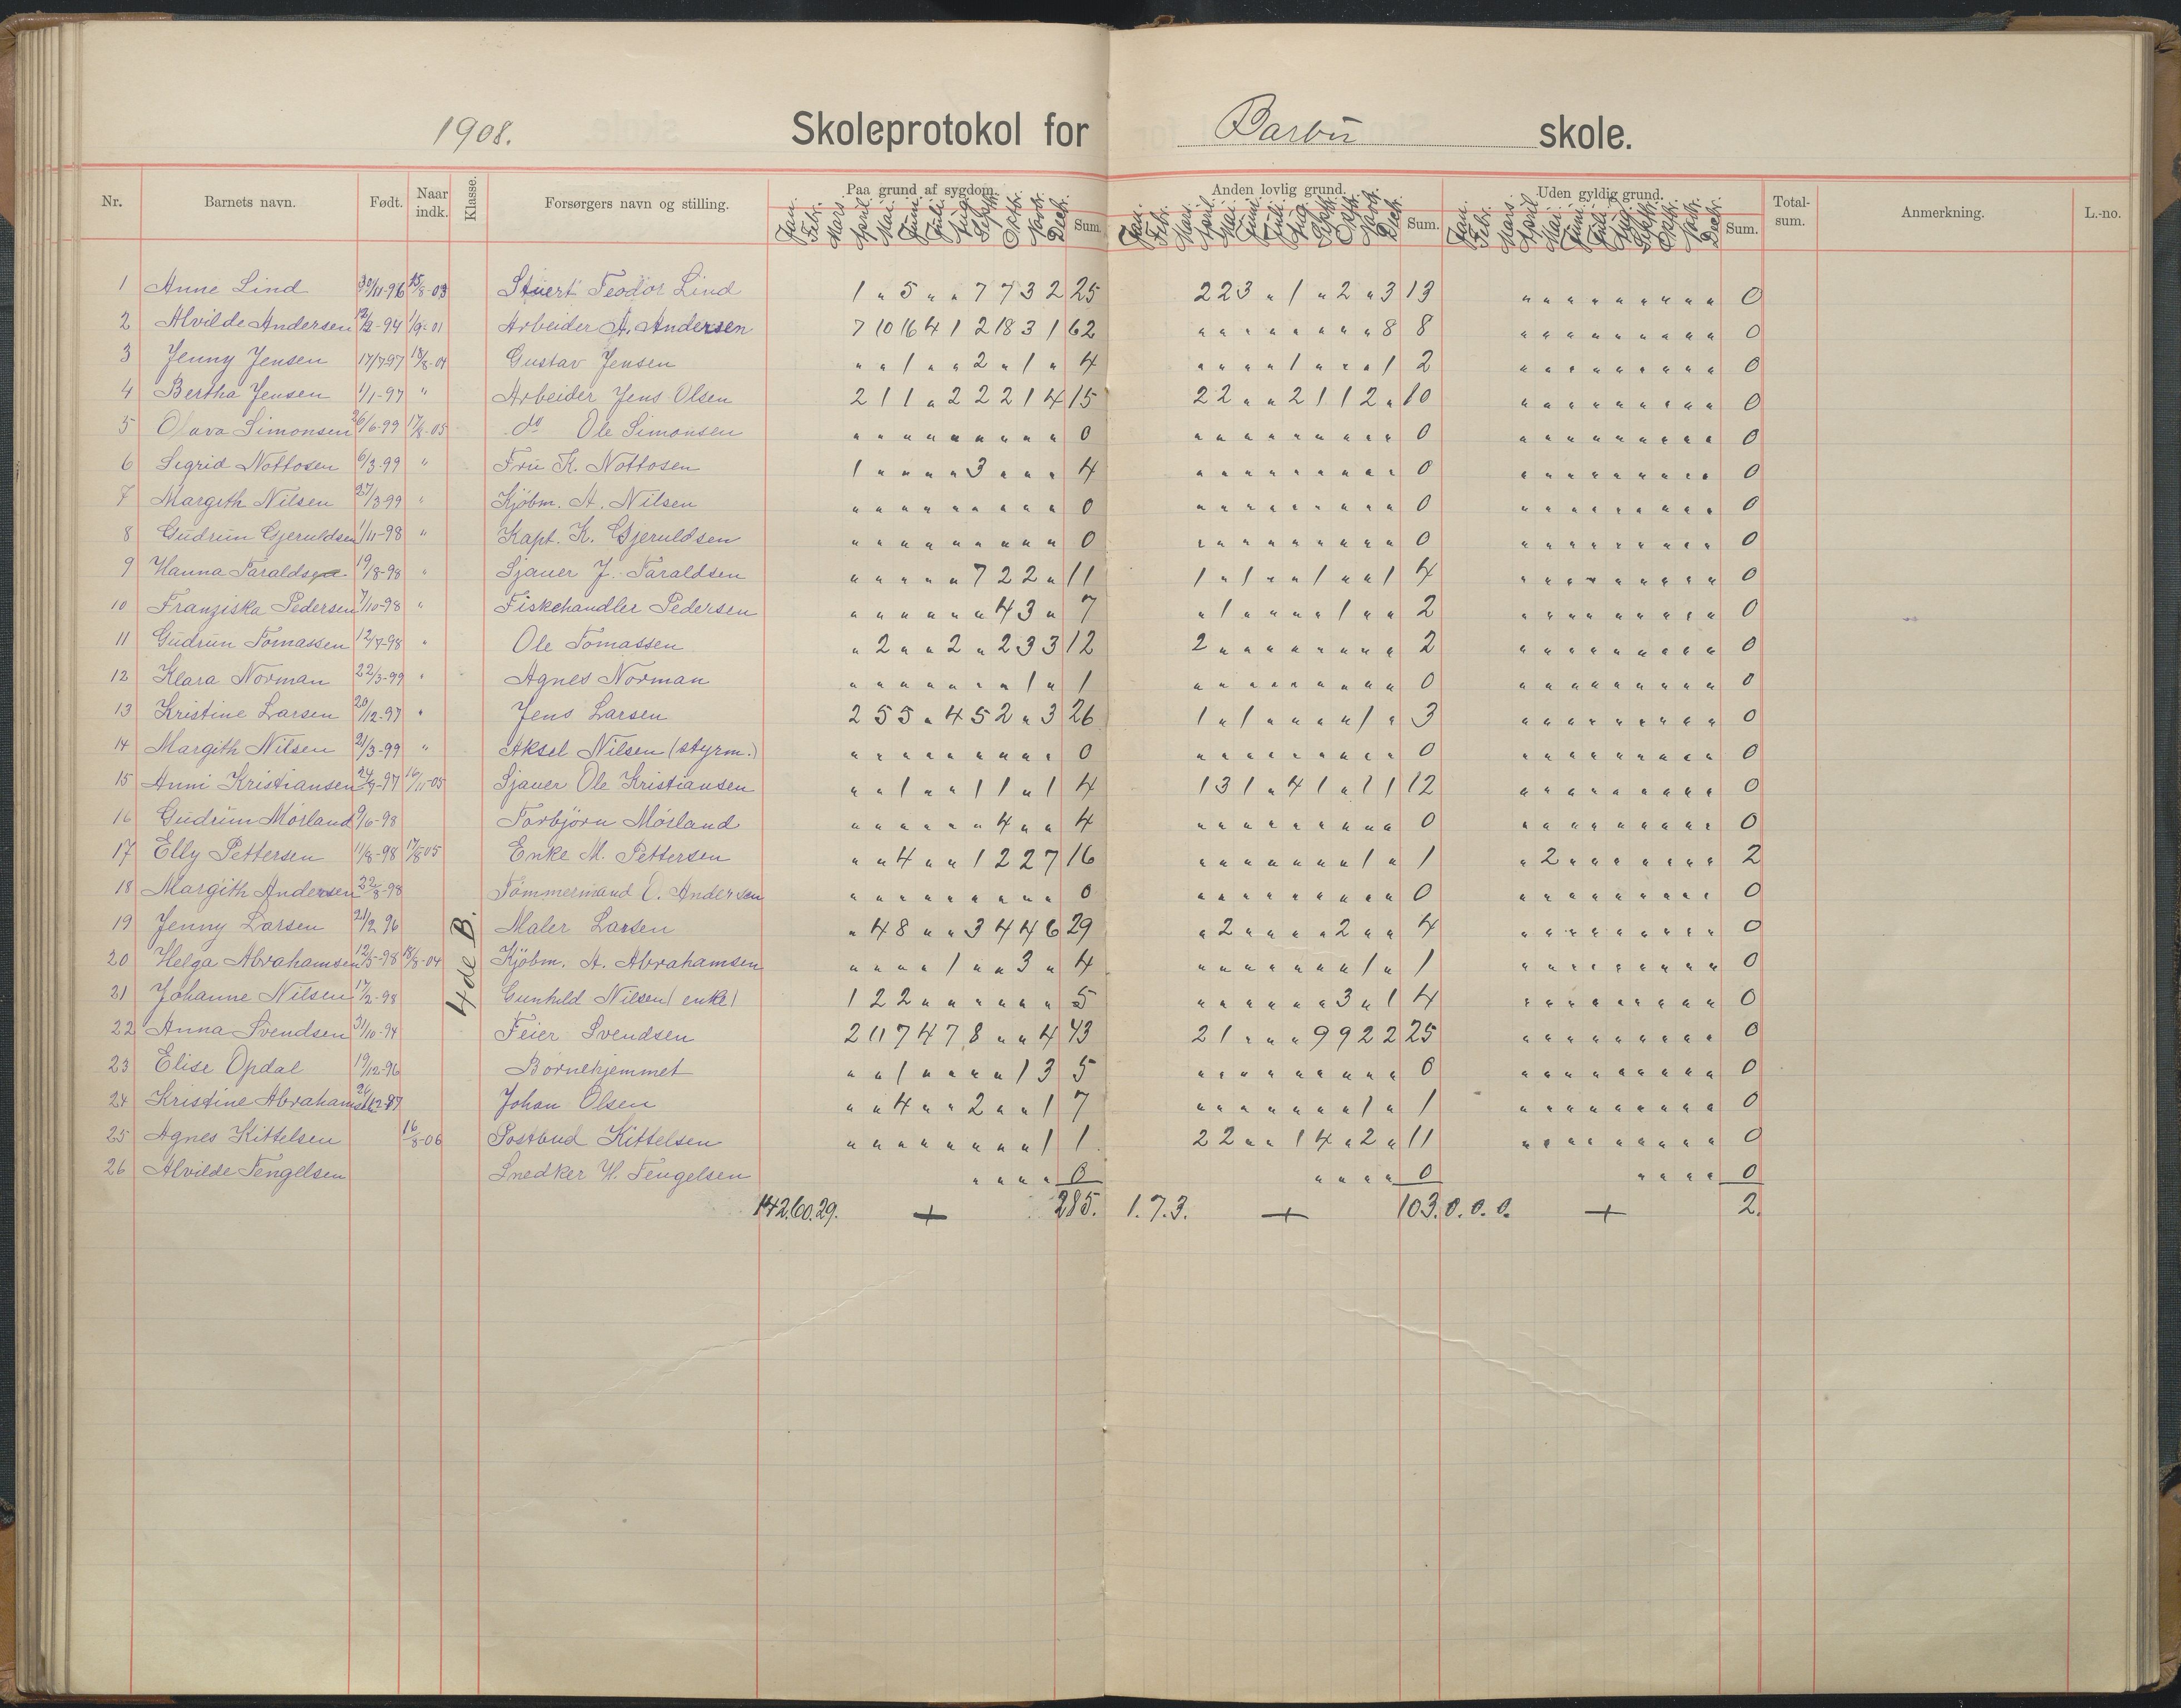 1908. Skoleprotokol for Barbu skole.
Nr. Barnets navn. Født. Naar indk. Klasse. Forsørgers navn og stilling. Paa grund af sygdom. Sum. Anden lovlig grund. Sum. Uden gyldig grund. Sum. Total-sum. Anmerkning. L.-no.
Jan. Febr. Mars. April. Mai. Juni. Juli. Aug. Septr. Oktr. Novbr. Decbr.
4de B.
1 Anne Lind 30/11-96 15/8-03 Stuert Teodor Lind 1 " 5 " " 7 7 3 2 25 2 2 3 " 1 " 2 " 3 13 " " " " " " " " " 0
2 Alvilde Andersen 12/2-94 1/9-01 Arbeider A. Andersen 7 10 16 4 1 2 18 3 1 62 " " " " " " " " 8 8 " " " " " " " " " 0
3 Jenny Jensen 17/7 97 18/8-04 Gustav Jensen " " 1 " " 2 " 1 " 4 " " " " 1 " " " 1 2 " " " " " " " " " 0
4 Bertha Jensen 1/1-97 " Arbeider Jens Olsen 2 1 1 " 2 2 2 2 1 4 15 2 2 " " 2 1 1 2 " 10 " " " " " " " " " 0
5 Olava Simonsen 26/6-99 17/8-05 do Ole Simonsen " " " " " " " " " 0 " " " " " " " " " 0 " " " " " " " " " 0
6 Sigrid Nottosen 6/3-99 " Fru K. Nottosen 1 " " " " 3 " " " 4 " " " " " " " " " 0 " " " " " " " " " 0
7 Margith Nilsen 27/3-99 " Kjøbm. A. Nilsen " " " " " " " " " 0 " " " " " " " " " 0 " " " " " " " " " 0
8 Gudrun Gjeruldsen 1/11-98 " Kapt. K. Gjeruldsen " " " " " " " " " 0 " " " " " " " " " 0 " " " " " " " " " 0
9 Hanna Taraldsen 19/8-98 " Sjauer J. Taraldsen " " " " " 7 2 2 " 11 1 " 1 " " 1 " " 1 4 " " " " " " " " " 0
10 Franziska Pedersen 7/10-98 " Fiskehandler Pedersen " " " " " " 4 3 " 7 " 1 " " " " 1 " " 2 " " " " " " " " " 0
11 Gudrun Tomassen 12/7-98 " Ole Tomassen " 2 " " 2 " 2 3 3 12 2 " " " " " " " " 2 " " " " " " " " " 0
12 Klara Norman 22/3-99 " Agnes Norman " " " " " " " 1 " 1 " " " " " " " " " 0 " " " " " " " " " 0
13 Kristine Larsen 20/12-97 " Jens Larsen 2 5 5 " 4 5 2 " 3 26 1 " 1 " " " " 1 " 3 " " " " " " " " " 0
14 Margith Nilsen 21/3-99 " Aksel Nilsen (styrm.) " " " " " " " " " 0 " " " " " " " " " 0 " " " " " " " " " 0
15 Anni Kristiansen 24/9-97 16/11-05 Sjauer Ole Kristiansen " " 1 " " 1 1 " 1 4 1 3 1 " 4 1 " 1 1 12 " " " " " " " " " 0
16 Gudrun Mørland 9/6-98 Torbjørn Mørland " " " " " " 4 " " 4 " " " " " " " " " 0 " " " " " " " " " 0
17 Elly Pettersen 11/8-98 17/8 05 Enke M. Pettersen " " 4 " " 1 2 2 7 16 " " " " " " " 1 " 1 " 2 " " " " " " " 2
18 Margith Andersen 22/8-98 Tømmermand O. Andersen " " " " " " " " " 0 " " " " " " " " " 0 " " " " " " " " " 0
19 Jenny Larsen 21/2 96 Maler Larsen " 4 8 " " 3 4 4 6 29 " 2 " " " " 2 " " 4 " " " " " " " " " 0
20 Helga Abrahamsen 12/5-98 18/8-04 Kjøbm. A. Abrahamsen " " " " 1 " " 3 " 4 " " " " " " " 1 " 1 " " " " " " " " " 0
21 Johanne Nilsen 17/2-98 Gunhild Nilsen (enke) 1 2 2 " " " " " " 5 " " " " " " 3 " 1 4 " " " " " " " " " 0
22 Anna Svendsen 31/10-94 Feier Svendsen 2 11 7 4 7 8 " " 4 43 2 1 " " " 9 9 2 2 25 " " " " " " " " " 0
23 Elise Opdal 19/12-96 Børnehjemmet " " 1 " " " " 1 3 5 " " " " " " " " " 0 " " " " " " " " " 0
24 Kristine Abrahamsen 26/12-97 Johan Olsen " " 4 " " 2 " " 1 7 " " " " " " " 1 " 1 " " " " " " " " " 0
25 Agnes Kittelsen 16/8-06 Postbud Kittelsen " " " " " " " " 1 1 2 2 " " 1 4 " 2 " 11 " " " " " " " " " 0
26 Alvilde Tengelsen Snedker H. Tengelsen " " " " 0 " " " " 0 " " " " 0
142.60.29. + 285. 1.7.3. + 103. 0.0.0. + 2.